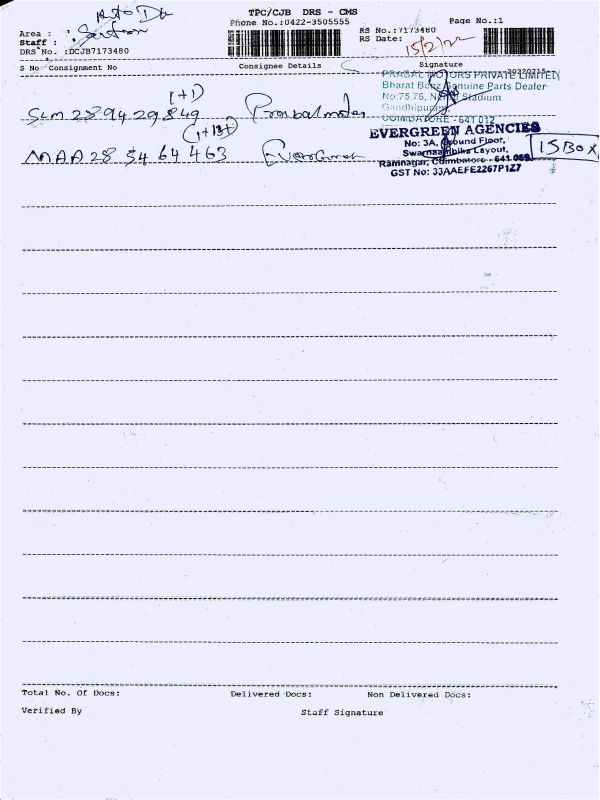 TPC/CJB DRS - CMS
Auto
Phone No.:0422-3505555
Page No.:1
Area :
Staff :
RS No.:7173480
RS Date: 15/2/22
DRS No. :DCJB7173480
S No Consignment No Consignee Details Signature
20220215
PRABAL MOTORS PRIVATE LIMITED
Bharat Benz Genuine Parts Dealer
No:75,76, Nehru Stadium
Gandhipuram
COIMBATORE - 641 012
(+1)
SLM 289429849 Prabal motor
EVERGREEN AGENCIES
No: 3A, Ground Floor,
Swarnaambika Layout,
Ramnagar, Coimbatore - 641 009.
GST No: 33AAEFE2267P1Z7
15 BOX
MAA 28 54 64 463 Evergreen
Total No. Of Docs: Delivered Docs: Non Delivered Docs:
Verified By Staff Signature